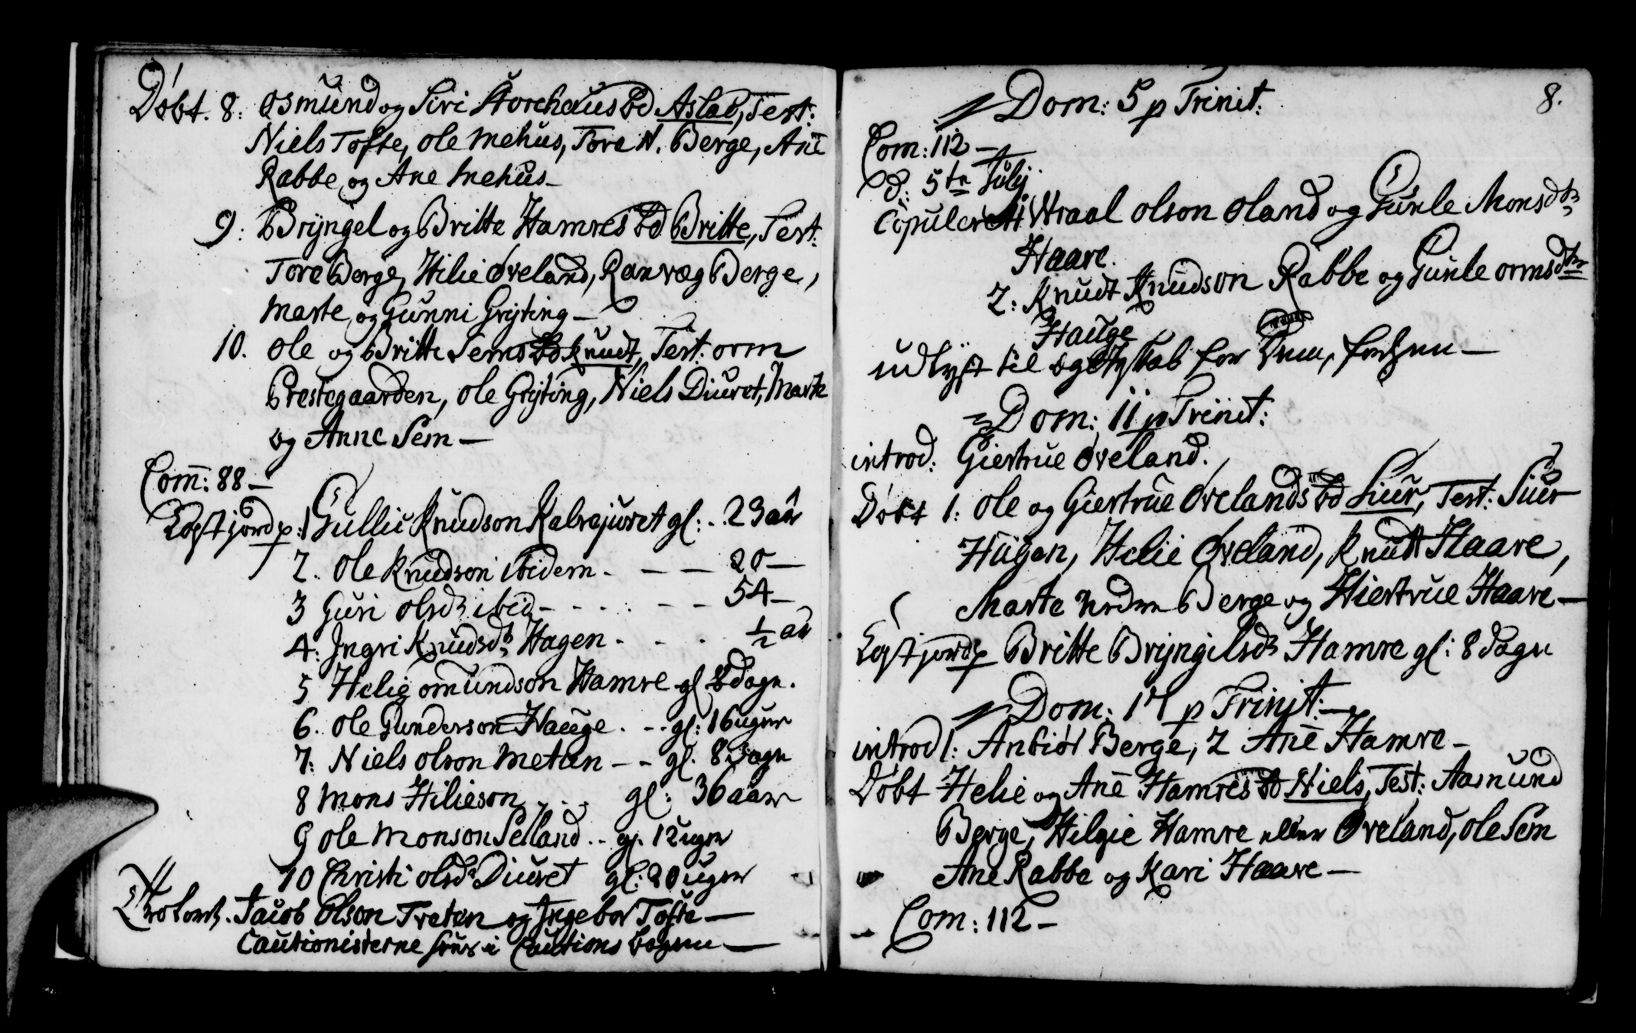 Døbt. 8: Osmund og Siri Storehaus bd Aslao, Test:
Niels Tofte, Ole Mehus, Tore N. Berge, Ane
Rabbe og Ane Mehus –
9: Bryngel og Britte Hamres bd Britte, Test:
Tore Berge, Hilie Øveland, Ranvæg Berge,
Marte og Gunni Gryting –
10. Ole og Britte Sems bd Knudt, Test: Orm
Prestegaarden, Ole Gryting, Niels Diuret, Marte
og Anne Sem –
Com: 88 –
Løstjordp: 1 Gullic Knudson Kalvejuvet gl: . . 23 aar
2. Ole Knudson ibidem . – – 20 –
3 Guri Olsdr ibid – . . . . – – 54 –
4: Ingri Knudsdr Hagen . . . . ½ aar
5 Helie Omundson Hamre gl 8 dage.
6. Ole Gunderson Hauge . . . gl: 16 uger
7: Niels Olson Metun – – gl. 8 dage
8 Mons Hilieson . . . gl: 36 aar
9 Ole Monson Selland . . gl. 12 uger
10 Christi Olsdr Diuret gl: 20 uger
Trolowt. Jacob Olson Traten og Ingebor Tofte –
Cautionisterne staar i Cautions bogen –
8.
Dom: 5 p Trinit:
Com: 112 –
D: 5te July
Copuleret 1 Wraal Olson Øland og Gunle Monsdtr
Haare.
2: Knudt Knudson Rabbe og Gunle Ormsdtr
Hauge
udlyst til ægteskab for
Dom: 11 p Trinit:
introd: Giertrue Øveland.
Døbt 1: Ole og Giertrue Øvelands bd Siur, Test: Siur
Hugen, Helie Øveland, Knudt Haare,
Marte Nedre Berge og Hiertrue Haare –
Løstjordp Britte Bryngilsdr Hamre gl: 8 dage
Dom: 17 p Trinit: –
introd 1: Anbiør Berge, 2 Ane Hamre –
Døbt Helie og Ane Hamres bd Niels, Test: Aasmund
Berge, Hilgie Hamre eller Øveland, Ole Sem
Ane Rabbe og Kari Haare –
Com: 112 –